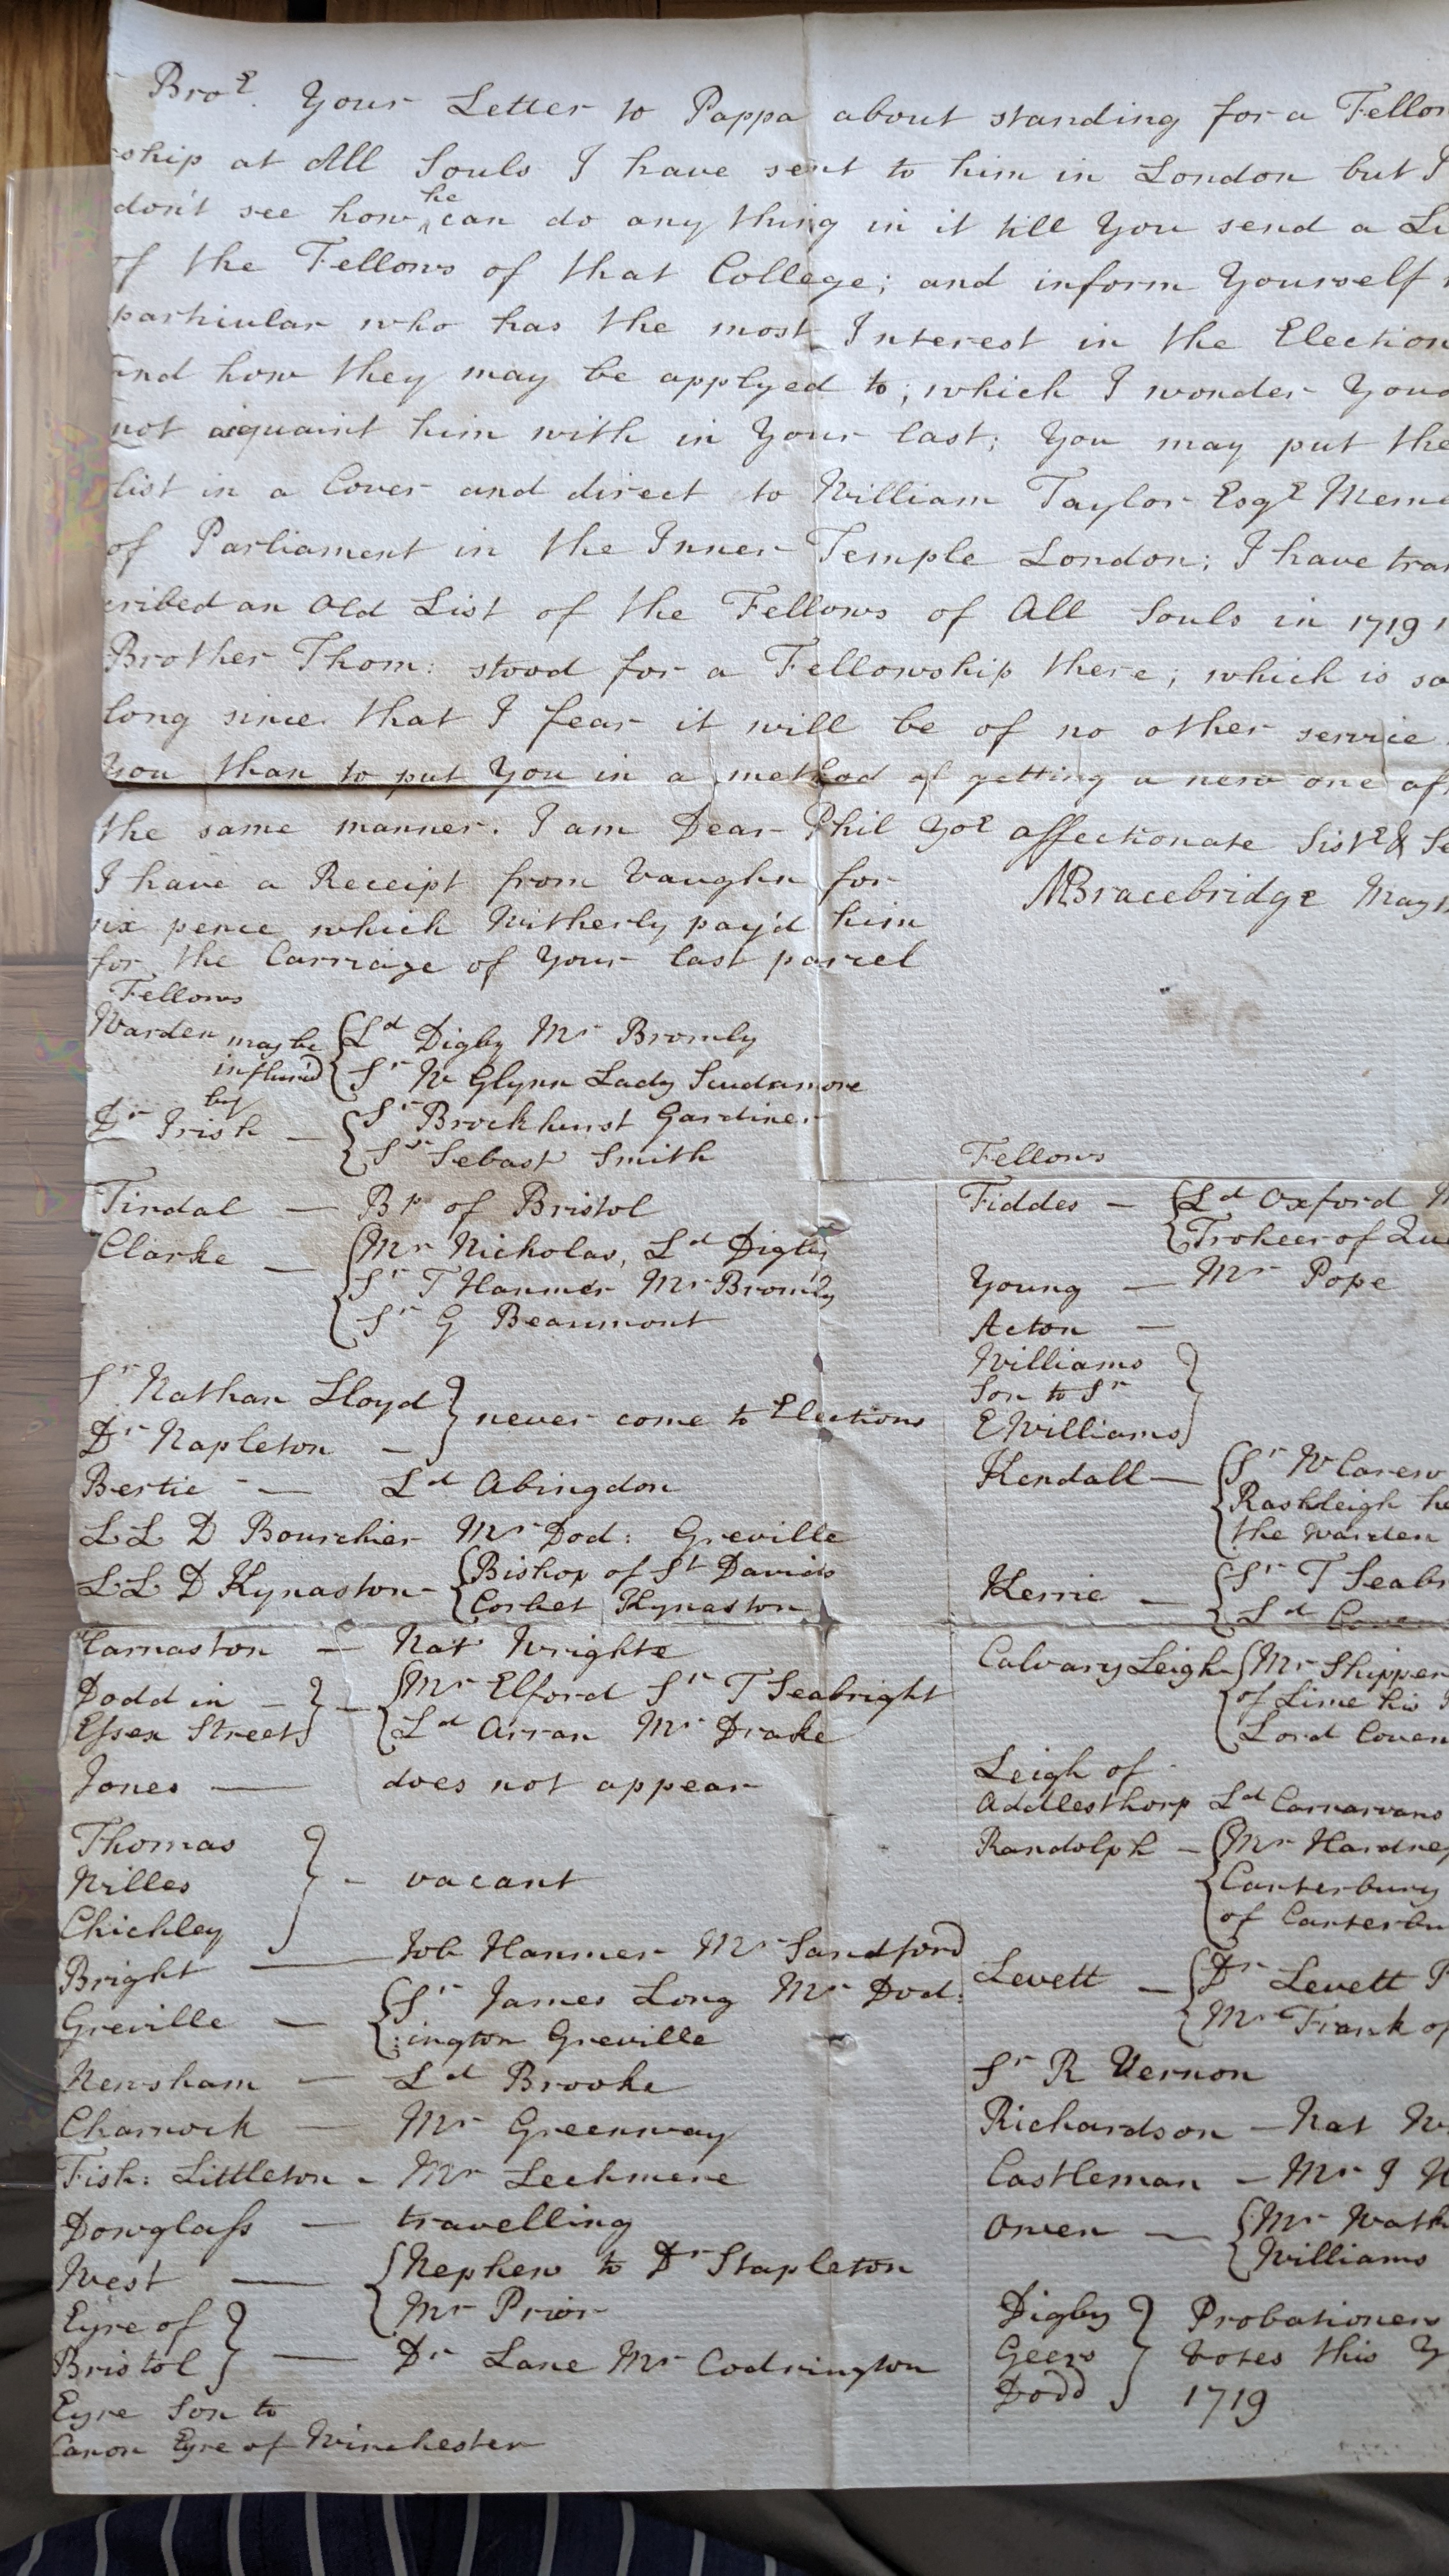 Bror. Your Letter to Pappa about standing for a Fellow
ship at All Souls I have sent to him in London but I
don't see how he can do any thing in it till You send a Li
of the Fellows of that College; and inform Yourself
particular who has the most Interest in the Election
and how they may be applyed to; which I wonder You
not acquaint him with in Your last; You may put the
list in a Cover and direct to William Taylor Esqr Mem
of Parliament in the Inner Temple London; I have tran
cribed an Old List of the Fellows of All Souls in 1719
Brother Thom: stood for a Fellowship there; which is so
long since that I fear it will be of no other service
You than to put You in a method of getting a new one af
the same manner. I am Dear Phil Yor affectionate Sistr & Se
MBracebridge May
I have a Receipt from Vaughn for
six pence which Witherly pay'd him
for the Carriage of Your last parcel
Fellows
Warden may be influenc'd by { Ld Digby Mr Bromly
Sr W Glynn Lady Scudamore
Dr Irish — { Sr Brockhurst Gardiner
Sr Sebast Smith
Tindal — Bp of Bristol
Clarke — { Mr Nicholas, Ld Digby
Sr T Hanmer Mr Bromly
Sr G Beaumont
Sr Nathan Lloyd
Dr Napleton — } never come to Elections
Bertie — Ld Abingdon
LL D Bourchier Mr Dod: Greville
LL D Kynaston — { Bishop of St Davids
Corbet Kynaston
Carnaston — Nat Wrighte
Dodd in
Essex Street } — { Mr Elford Sr T Seabright
Ld Arran Mr Drake
Jones — does not appear
Thomas
Willes
Chichley } - vacant
Bright — Job Hanmer Mr Sandford
Greville — { Sr James Long Mr Dod:
:ington Greville
Newsham — Ld Brooke
Charnock — Mr Greenway
Fish: Littleton - Mr Lechmere
Dowglass — travelling
West — { Nephew to Dr Stapleton
Mr Prior
Eyre of
Bristol } — Dr Lane Mr Codrington
Eyre Son to
Canon Eyre of Winchester
Fellows
Fiddes — { Ld Oxford M
of Qu
Young — Mr Pope
Acton —
Williams
Son to Sr
E Williams }
Kendall — { Sr W Carew
Rashleigh he
the Warden
Kerrie — { Sr T Seabr
Ld Coven
Calvary Leigh - { Mr Shippen
of Lime his
Lord Coven
Leigh of
Addlesthorp Ld Carnarvans
Randolph — { Mr Hardre
Canterbury
of Canterbu
Levett — { Dr Levett P
Mr Frank of
Sr R Vernon
Richardson — Nat W
Castleman — Mr J
Owen — { Mr Watk
Williams
Digby
Geers
Dodd } Probationers
Votes this Y
1719